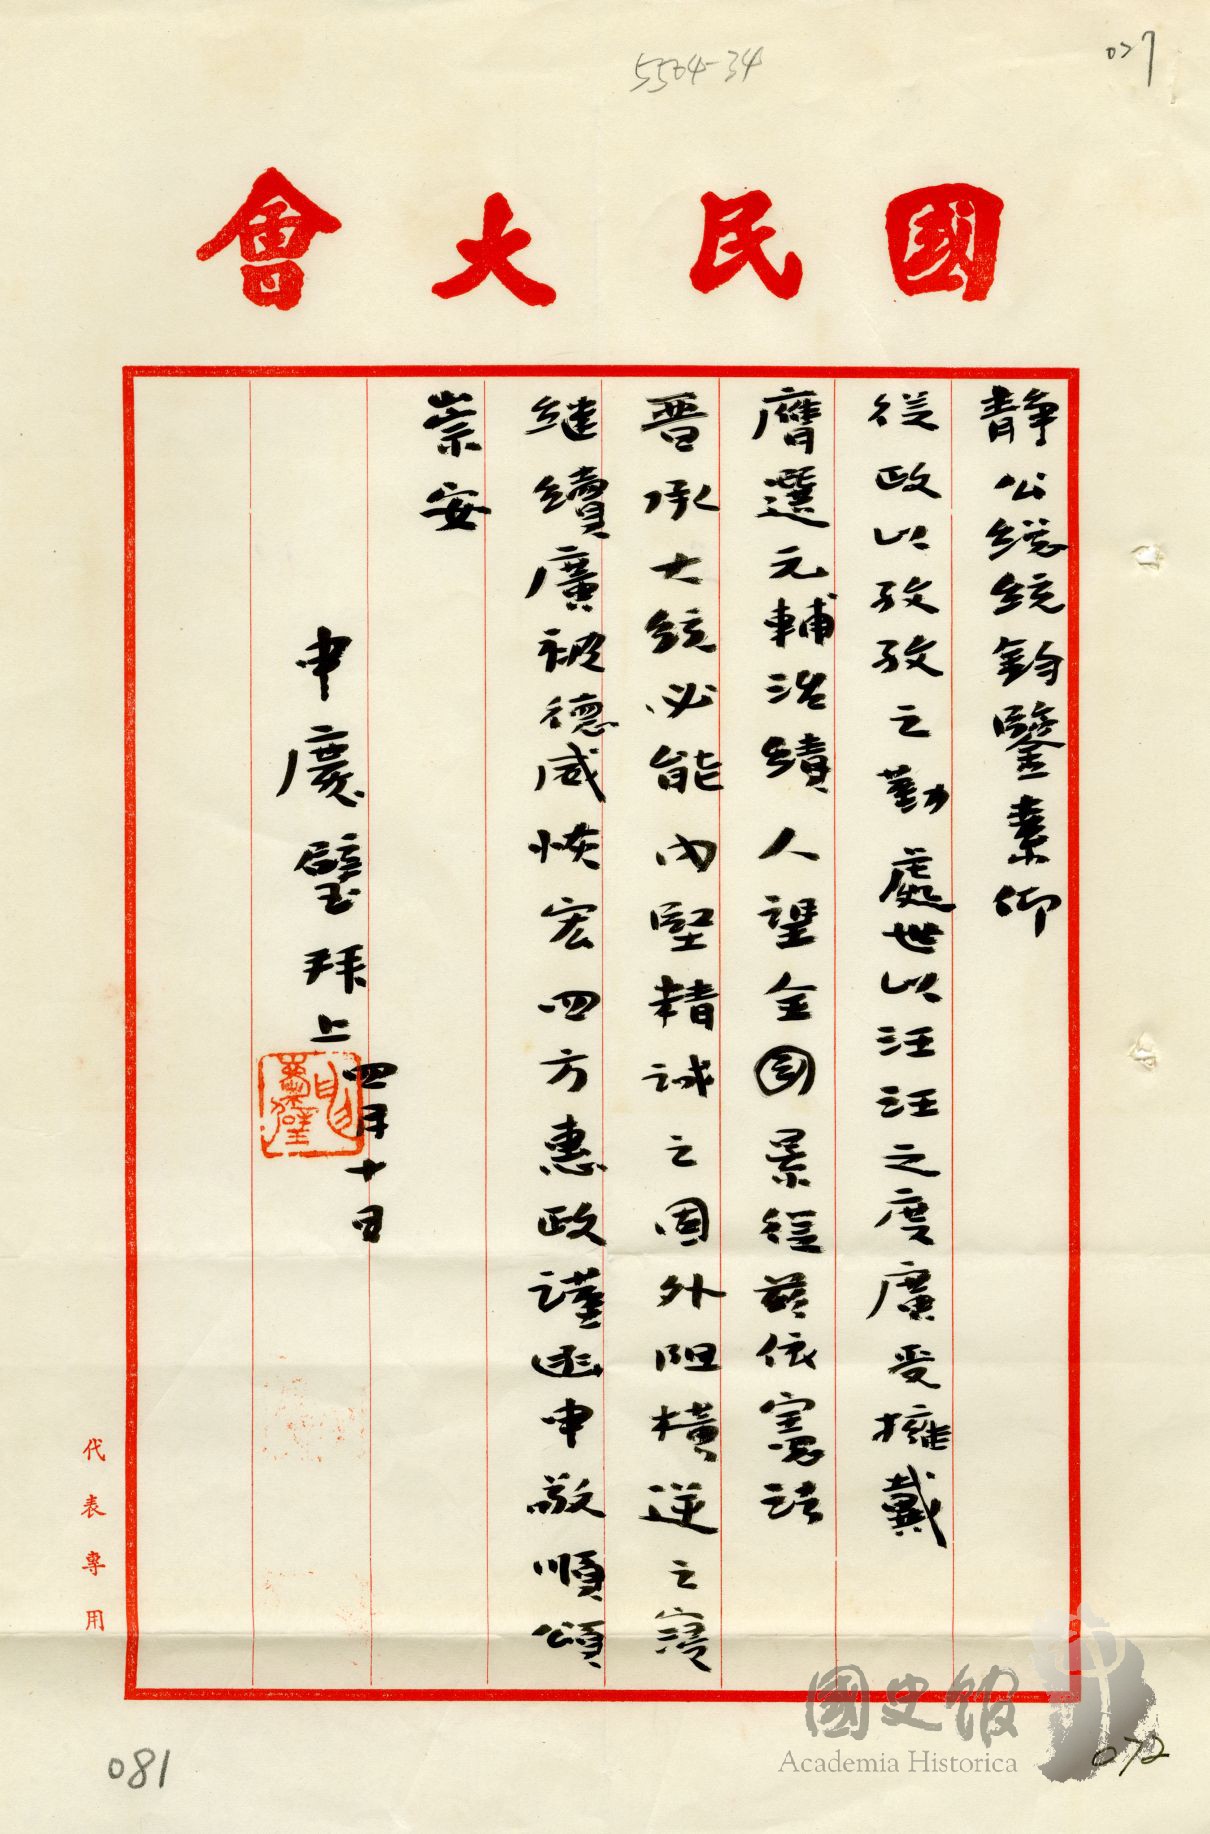 國民大會
靜公總統鈞鑒素仰
從政以孜孜之勤處世以汪汪之度廣受擁戴
膺選元輔治績人望全國景從茲依憲法
晉承大統必能內堅精誠之固外阻橫逆之寇
繼續廣被德威恢宏四方惠政謹函申敬順頌
崇安
申慶璧拜上
四月十日
代表專用
081
072
國史館
Academia Historica